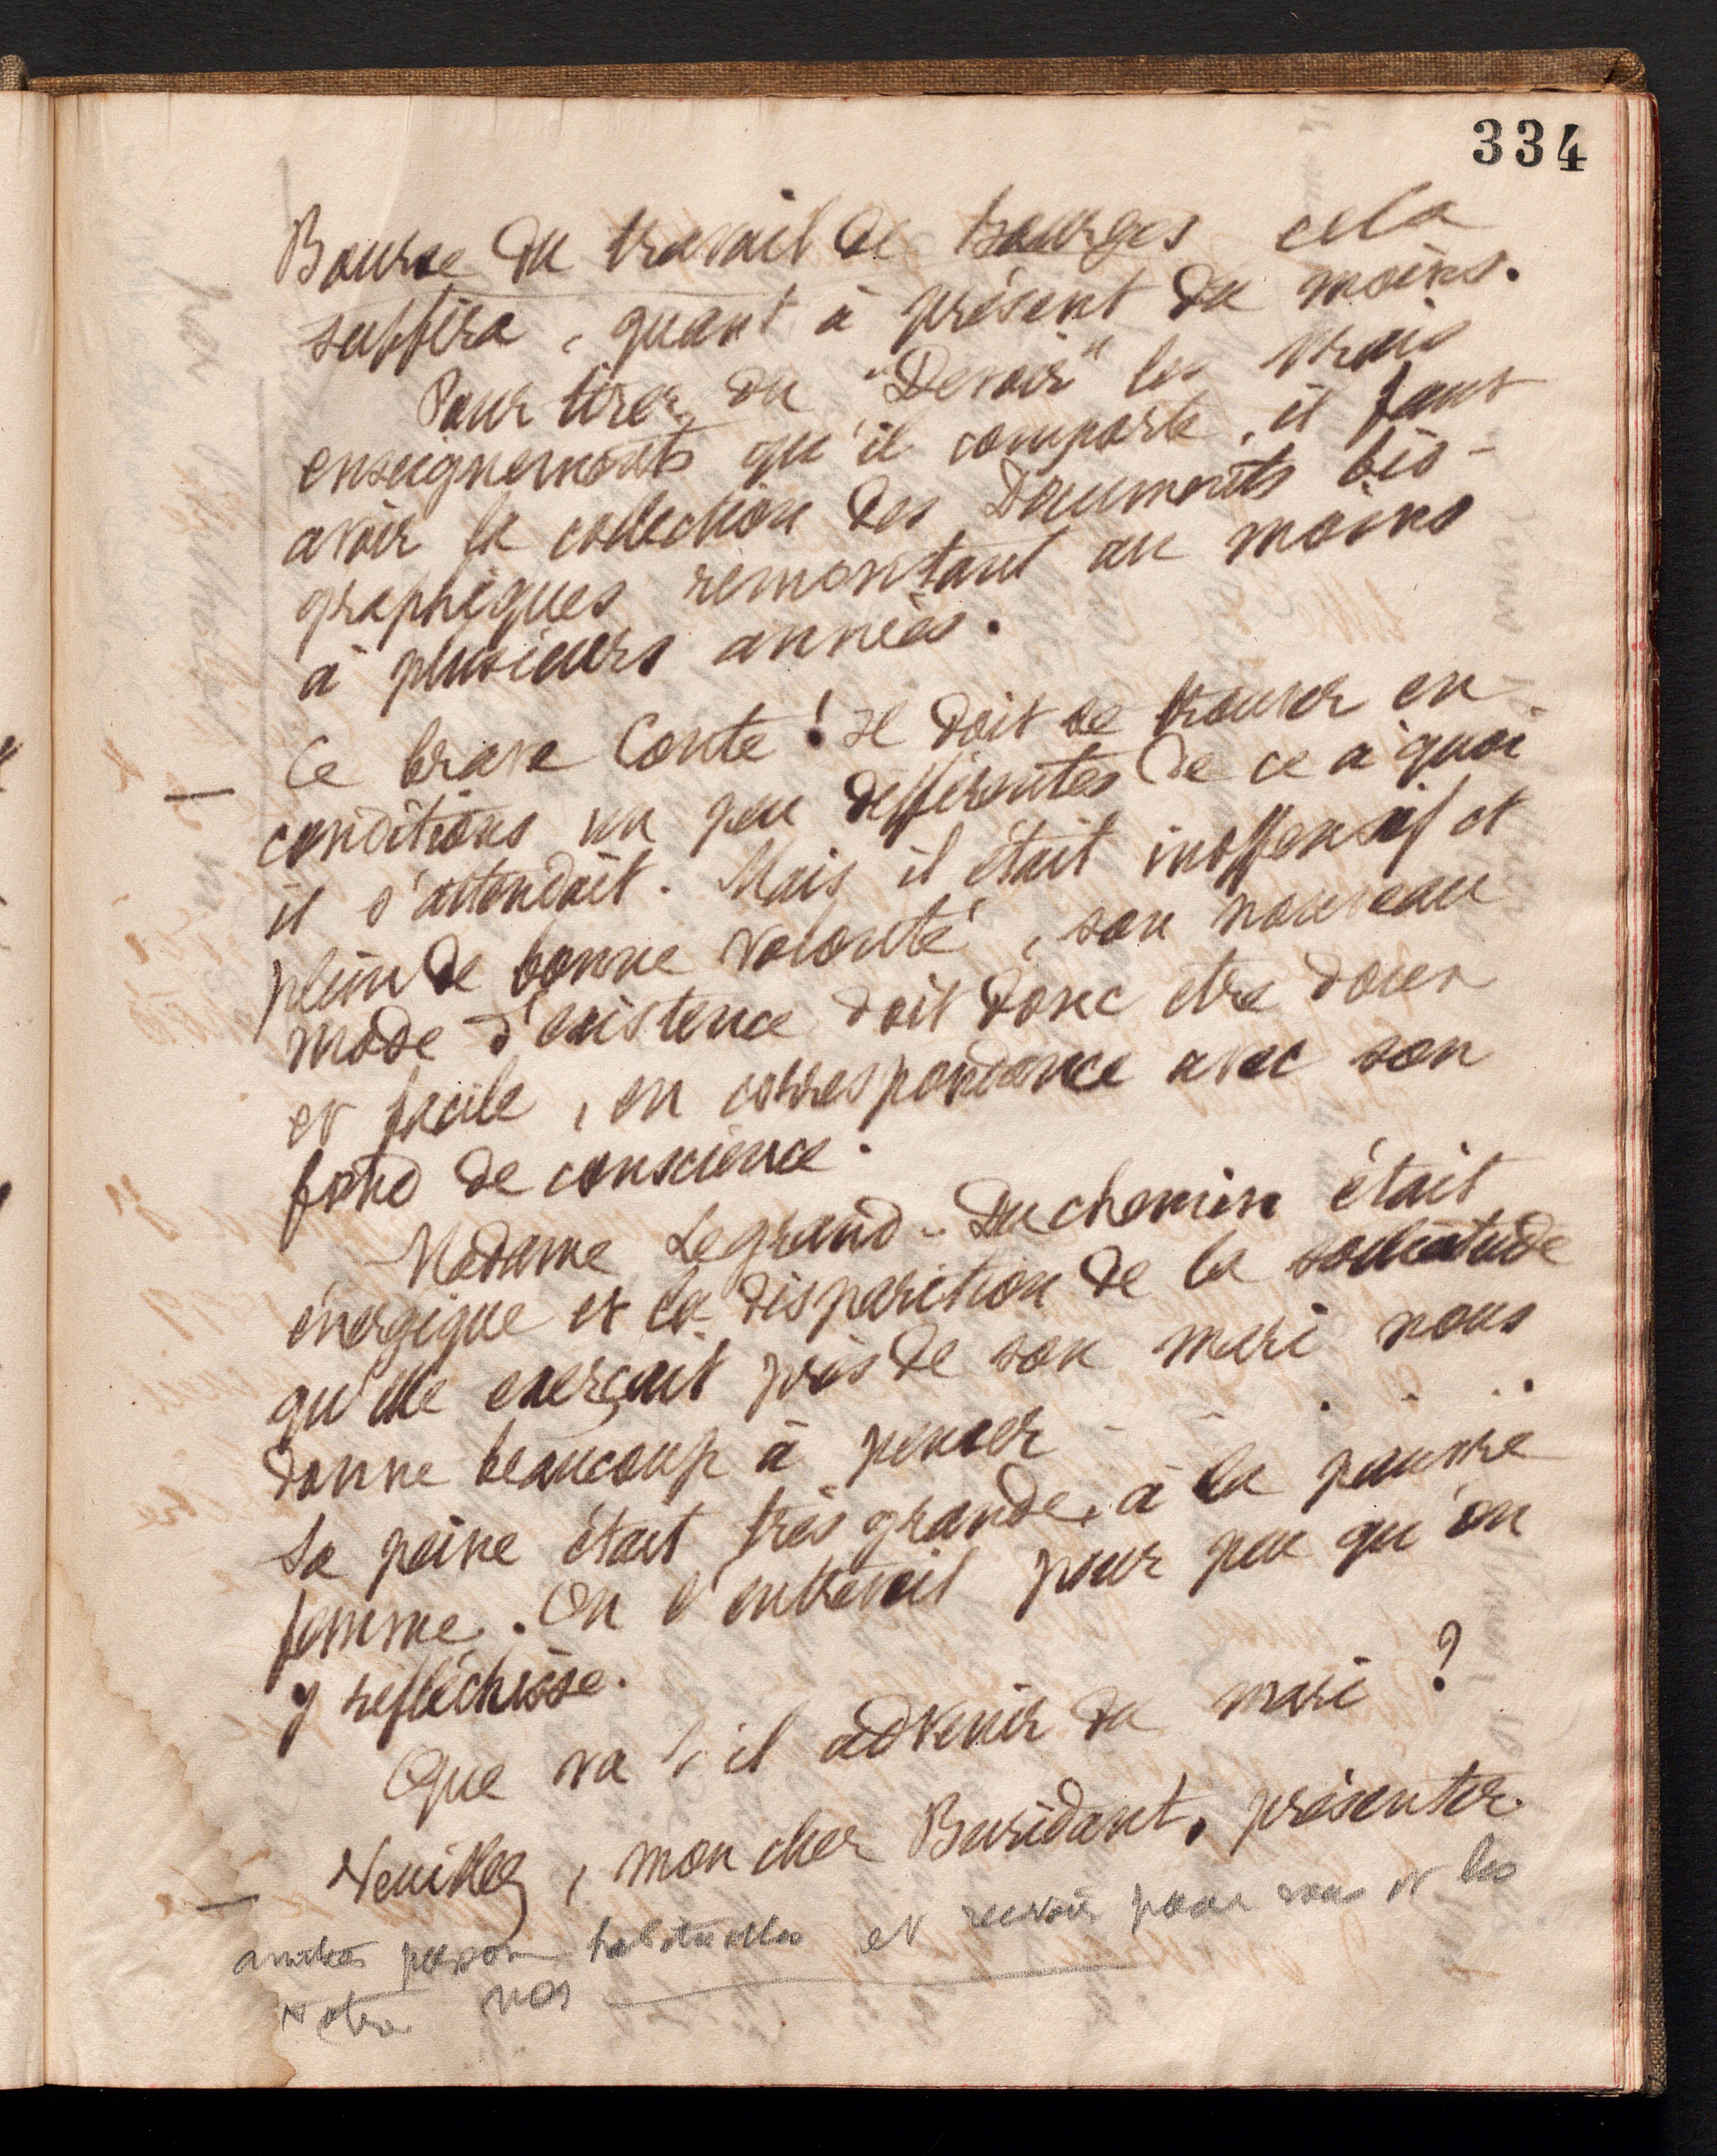 334
Bourse du travail de Bourges cela
suffira, quant à présent du moins.
Pour tirer du "Devoir" les vrais
enseignements qu'il comporte, il faut
avoir la collection des documents bio-
graphiques remontant au moins
à plusieurs années.
— Ce brave Conte ! Il doit se trouver en
conditions un peu différentes de ce à quoi
il s'attendait. Mais il était inoffensif et
plein de bonne volonté, son nouveau
mode d'existence doit donc être doux
et facile, en correspondance avec son
fond de conscience.
Madame Legrand-Duchemin était
énergique et la disparition de la sollicitude
qu'elle exerçait près de son mari nous
donne beaucoup à penser
Sa peine était très grande, à la pauvre
femme. On l'entrevoit pour peu qu'on
y réfléchisse.
Que va t'il advenir du mari ?
— Veuillez, mon cher Buridant, présenter
amitiés habituelles et recevoir pour vous et les
vôtres nos